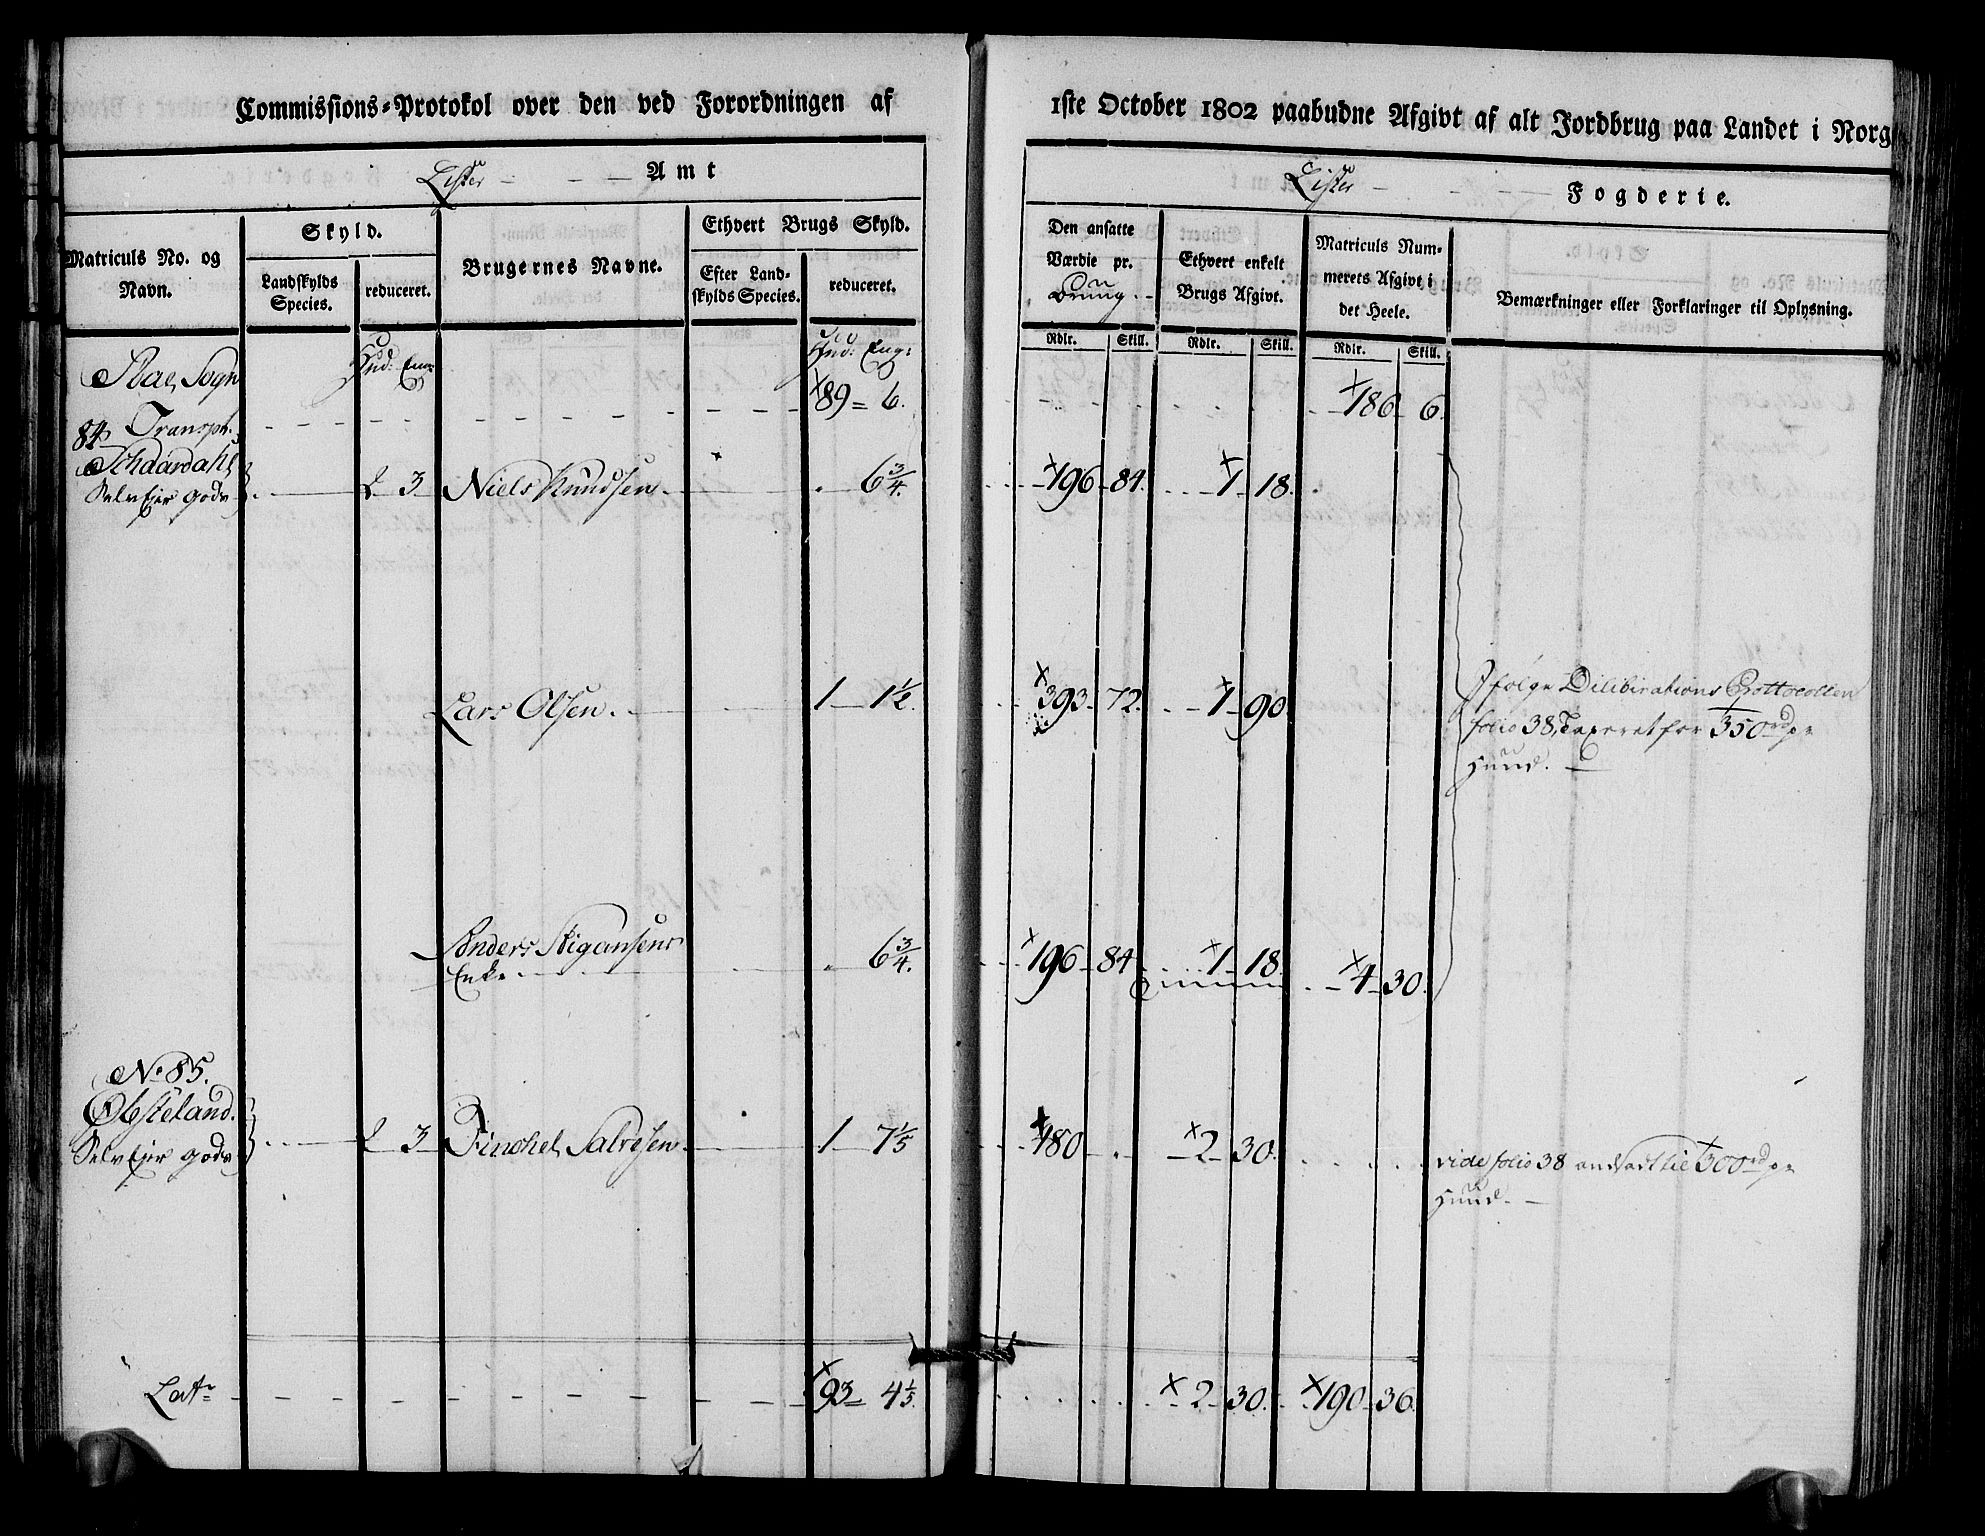 Commissions-Protokol over den ved Forordningen af
1ste October 1802 paabudne Afgivt af alt Jordbrug paa Landet i Norg
Lister Amt
Lister Fogderie.
Matriculs No. og Navn.
Skyld.
Landskylds Species.
reduceret.
Brugernes Navne.
Ethvert Brugs Skyld.
Efter Landskylds Species.
reduceret.
Den ansatte Værdie pr.
Ethvert enkelt Brugs Afgivt.
Matriculs Nummerets Afgivt i det Heele.
Bemærkninger eller Forklaringer til Oplysning.
Rdlr. Skill. Rdlr. Skill. Rdlr. Skill.
Hud: Eng: Hud: Eng:
Sogn
Transpt. 89 = 6. 186 6.
84
Selv Ejer gods 2 3 Niels Knudsen 6 3/4. 196 84. 1 18.
Lars Olsen. 1 1 1/2. 393 72. 1 90
Ifølge Dilibirations Prottocollen
folio 38, Taxeret for 350 rd pr
Huud.
Anders Stigansens
Enke. 6 3/4. 196 84 1 18. 4 30.
No 85.
Øbsteland.
Selv Ejer gods 2 3 Finchel Salvesen. 1 7 1/5 480 2 30.
vide folio 38 andsadt til 300 rd pr
Huud.
Latr 93 4 1/5. 2 30. 190 36.